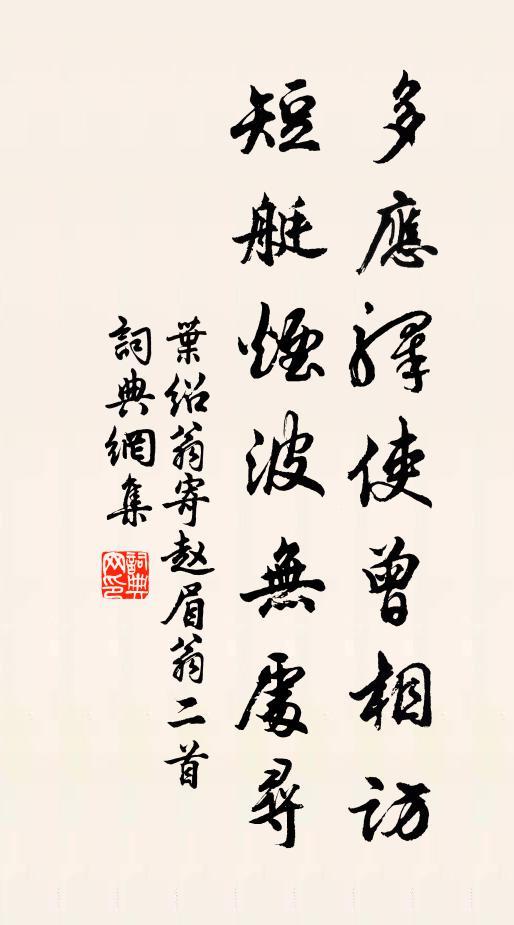 多應驛使曾相訪
短艇煙波無處尋
葉紹翁寄趙眉翁二首
詞典網集
詞典网印